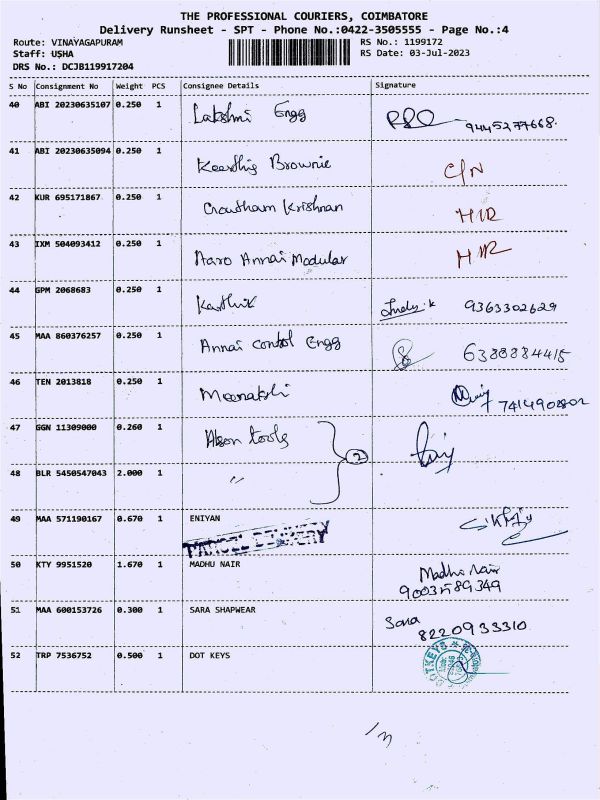 THE PROFESSIONAL COURIERS, COIMBATORE
Delivery Runsheet - SPT - Phone No.:0422-3505555 - Page No.:4
Route: VINAYAGAPURAM RS No.: 1199172
Staff: USHA RS Date: 03-Jul-2023
DRS No.: DCJB119917204
S No Consignment No Weight PCS Consignee Details Signature
40 ABI 20230635107 0.250 1 Lakshmi Engg 9445277668.
41 ABI 20230635094 0.250 1 Keerthig Brownie C/N
42 KUR 695171867 0.250 1 Gowtham Krishnan
43 IXM 504093412 0.250 1 Aaro Annai Modular
44 GPM 2068683 0.250 1 Karthik 9363302629
45 MAA 860376257 0.250 1 Annai Control Engg 6380884415
46 TEN 2013818 0.250 1 Meenakshi 7414902802
47 GGN 11309000 0.260 1 tools
2
48 BLR 5450547043 2.000 1 "
49 MAA 571190167 0.670 1 ENIYAN
PARCEL DELIVERY
50 KTY 9951520 1.670 1 MADHU NAIR Madhu Nair
51 MAA 600153726 0.300 1 SARA SHAPWEAR Sara
8220933310
52 TRP 7536752 0.500 1 DOT KEYS
DOTKEYS